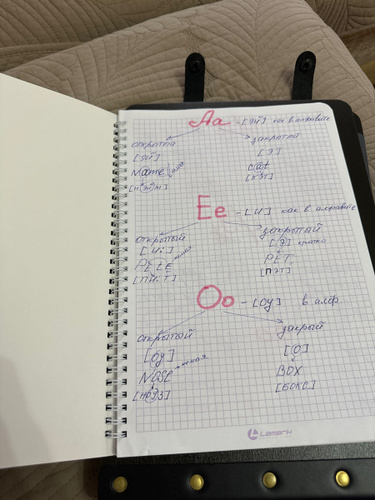 Aa - [эй] как в алфавите
открытый закрытый
[эй] [э]
Name cat
[нэйм] [кэт]
Ee - [и] как в алфавите
открытый закрытый
[и:] [э] кратко
PETE PET
[пи:т] [пэт]
Oo - [оу] в алф.
открытый закрый
[оу] [о]
NOSE BOX
[ноуз] [бокс]
Lamark